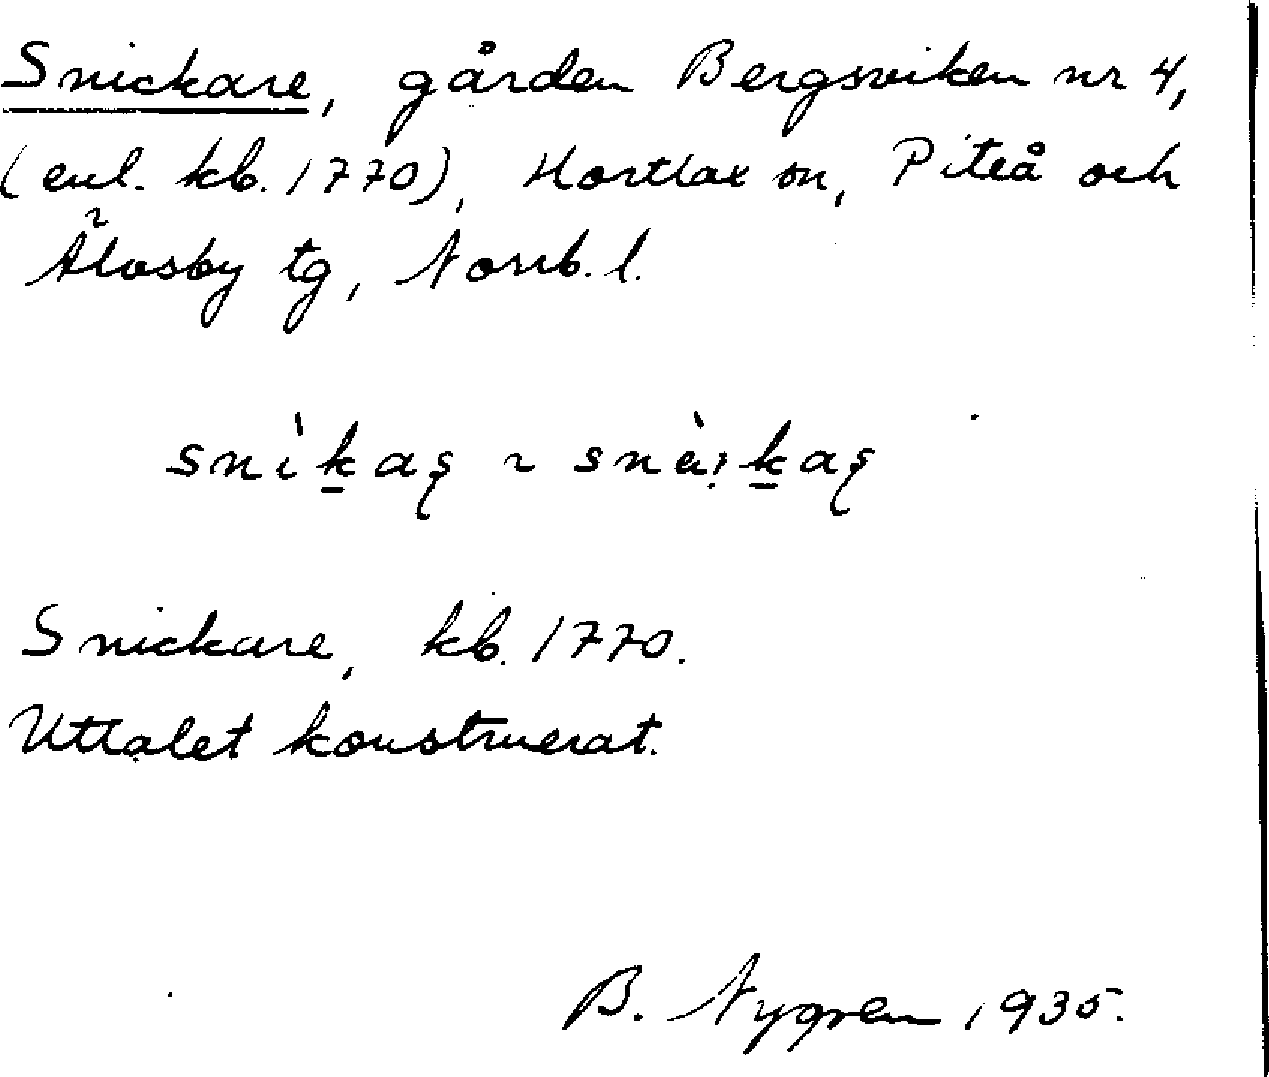 Snickare, gården Bergsviken nr 4,
(enl. kb. 1770), Hortlax sn, Piteå och
Älvsby tg, Norrb. l.
snìk̲aꞔ ~ snàı̣k̲aꞔ
Snickare, kb. 1770.
Uttalet konstruerat.
B. Nygren 1935.